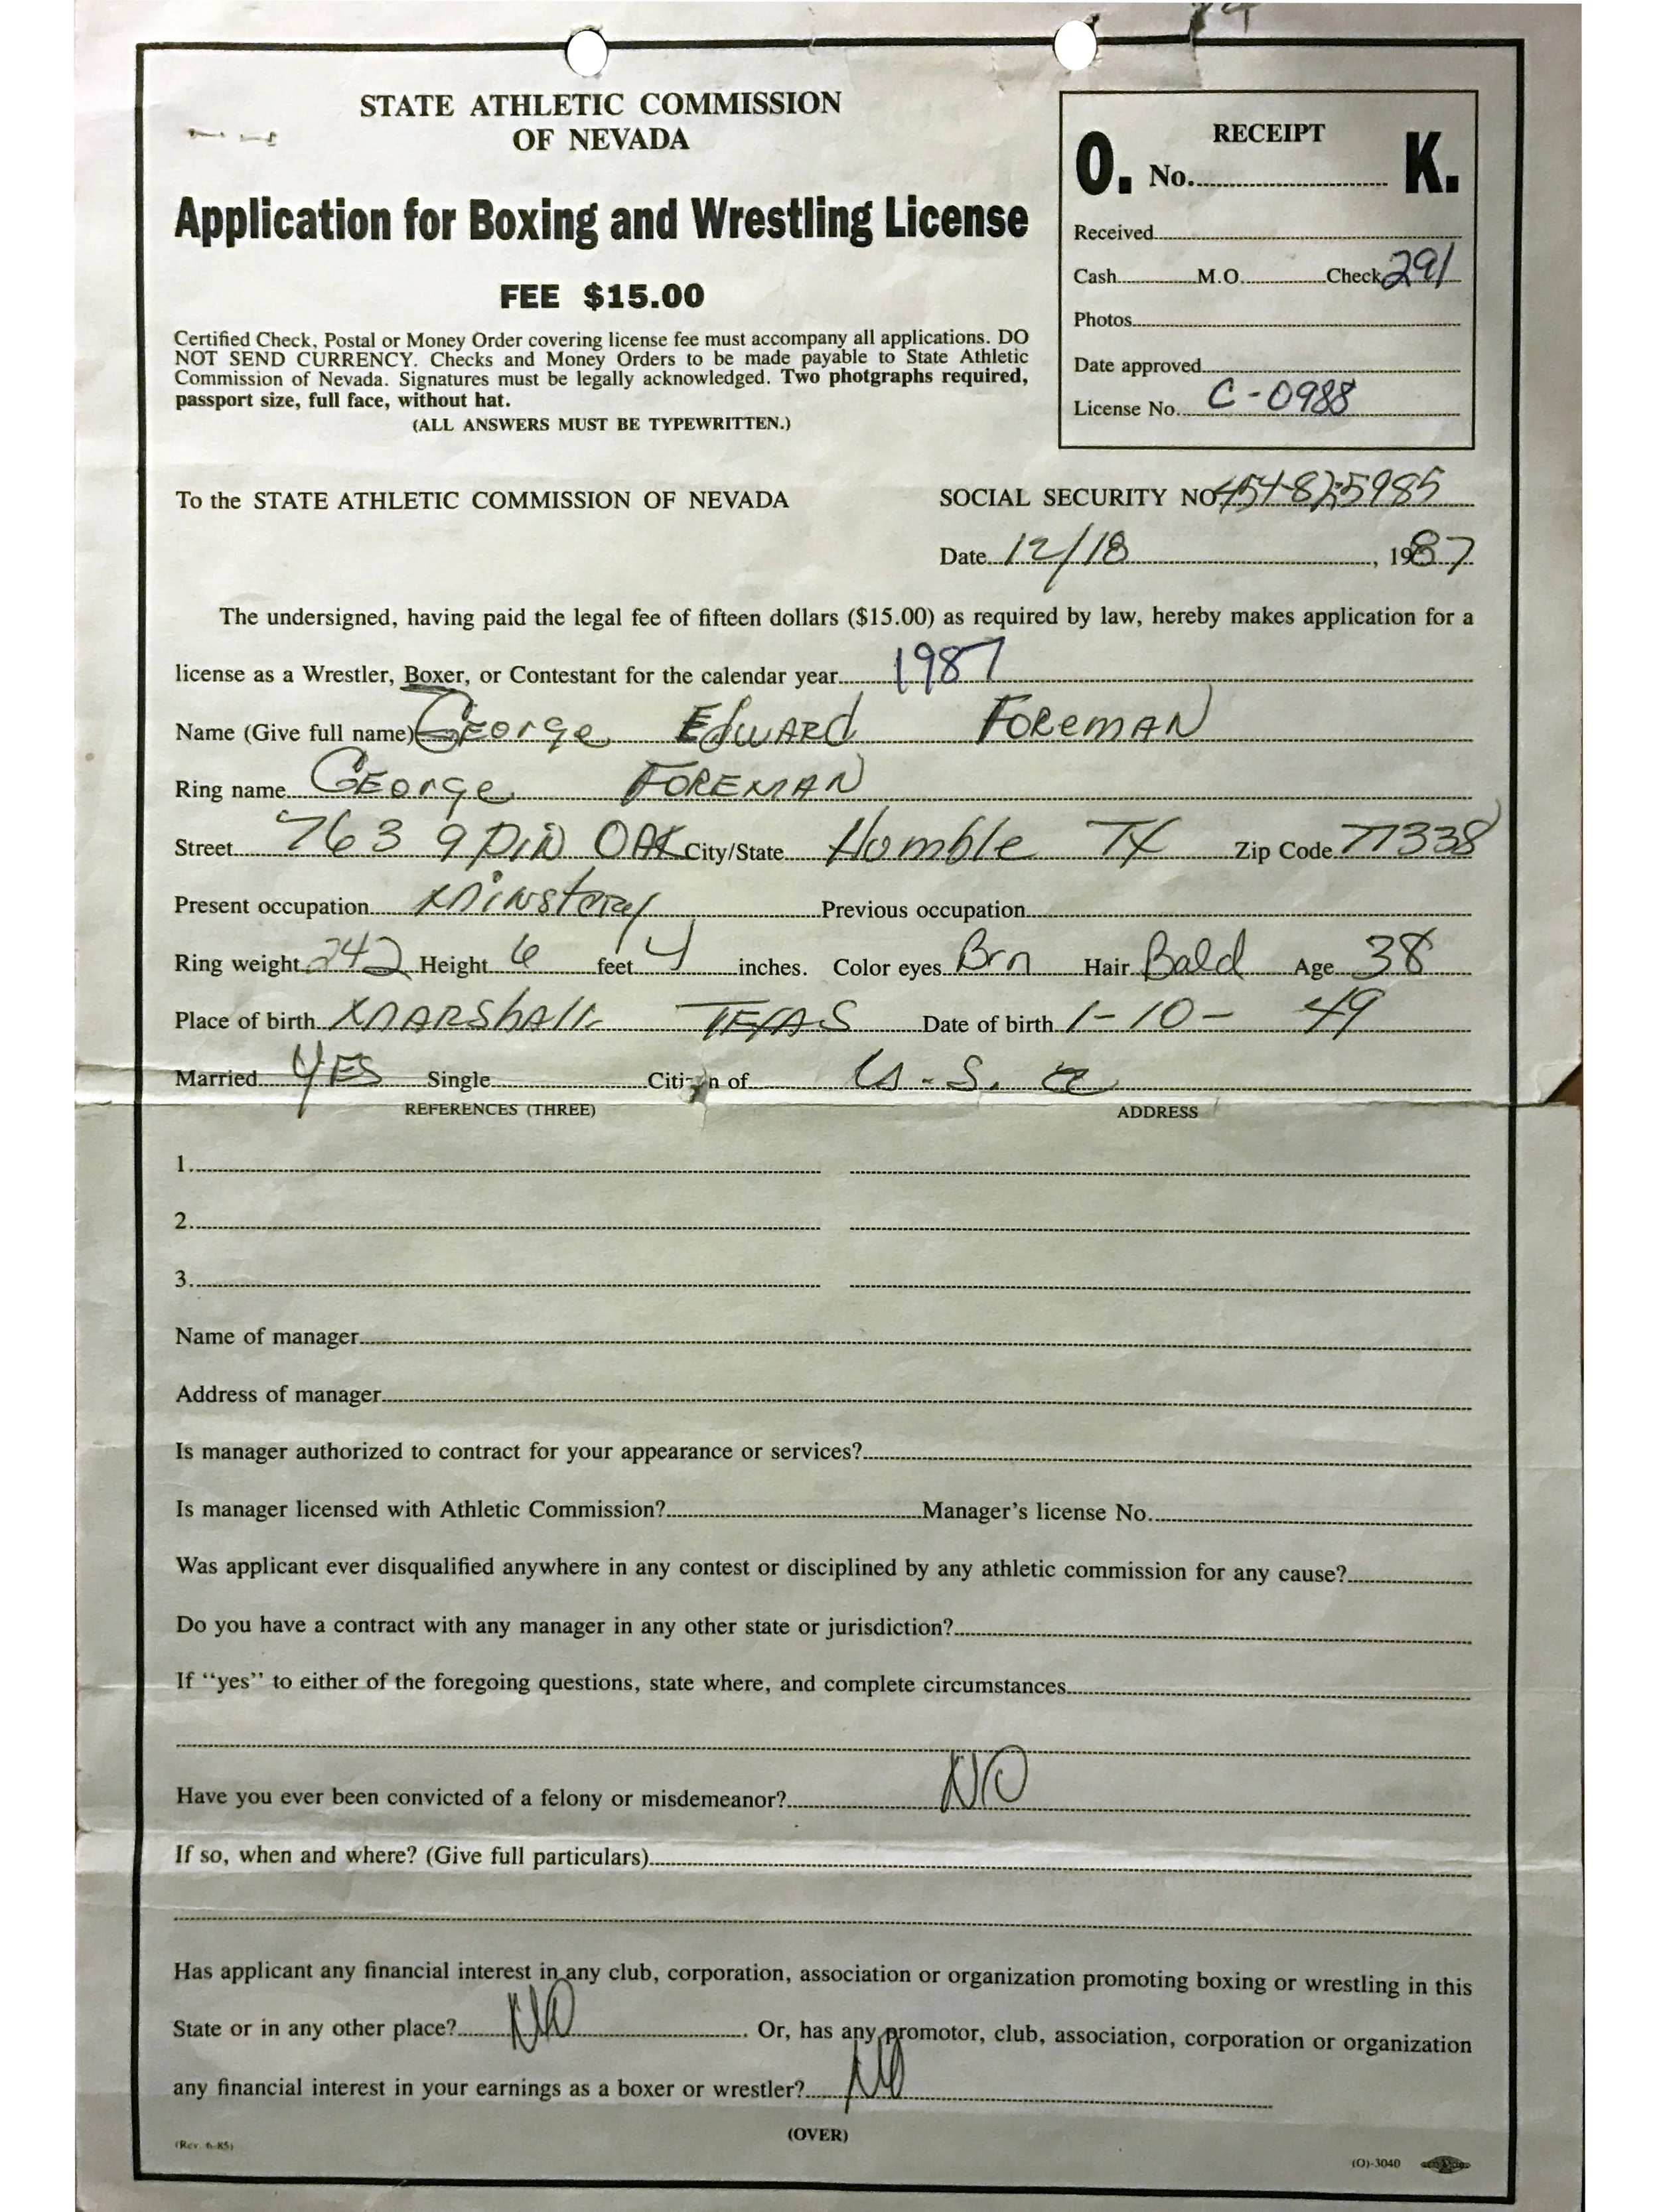 STATE ATHLETIC COMMISSION
OF NEVADA
Application for Boxing and Wrestling License
FEE $15.00
Certified Check, Postal or Money Order covering license fee must accompany all applications. DO
NOT SEND CURRENCY. Checks and Money Orders to be made payable to State Athletic
Commission of Nevada. Signatures must be legally acknowledged. Two photgraphs required,
passport size, full face, without hat.
(ALL ANSWERS MUST BE TYPEWRITTEN.)
RECEIPT
O. No. K.
Received
Cash M.O. Check 291
Photos
Date approved
License No. C-0988
To the STATE ATHLETIC COMMISSION OF NEVADA
SOCIAL SECURITY NO.
Date 12/18, 1987
The undersigned, having paid the legal fee of fifteen dollars ($15.00) as required by law, hereby makes application for a
license as a Wrestler, Boxer, or Contestant for the calendar year 1987
Name (Give full name) George Edward Foreman
Ring name George Foreman
Street 7639 Pin Oak City/State Humble TX Zip Code 77338
Present occupation Minstery Previous occupation
Ring weight 242 Height 6 feet 4 inches. Color eyes Brn Hair Bald Age 38
Place of birth Marshall Texas Date of birth 1-10-49
Married YES Single Citizen of U.S.a
REFERENCES (THREE) ADDRESS
1.
2.
3.
Name of manager
Address of manager
Is manager authorized to contract for your appearance or services?
Is manager licensed with Athletic Commission? Manager's license No.
Was applicant ever disqualified anywhere in any contest or disciplined by any athletic commission for any cause?
Do you have a contract with any manager in any other state or jurisdiction?
If "yes" to either of the foregoing questions, state where, and complete circumstances
Have you ever been convicted of a felony or misdemeanor? NO
If so, when and where? (Give full particulars)
Has applicant any financial interest in any club, corporation, association or organization promoting boxing or wrestling in this
State or in any other place? NO. Or, has any promotor, club, association, corporation or organization
any financial interest in your earnings as a boxer or wrestler? NO
(OVER)
(Rev. 6-85)
(O)-3040